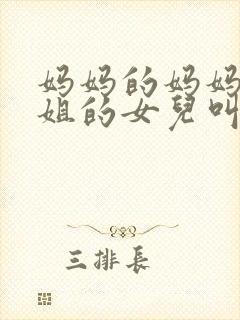 妈妈的妈妈
姐的女兒叫
三排長